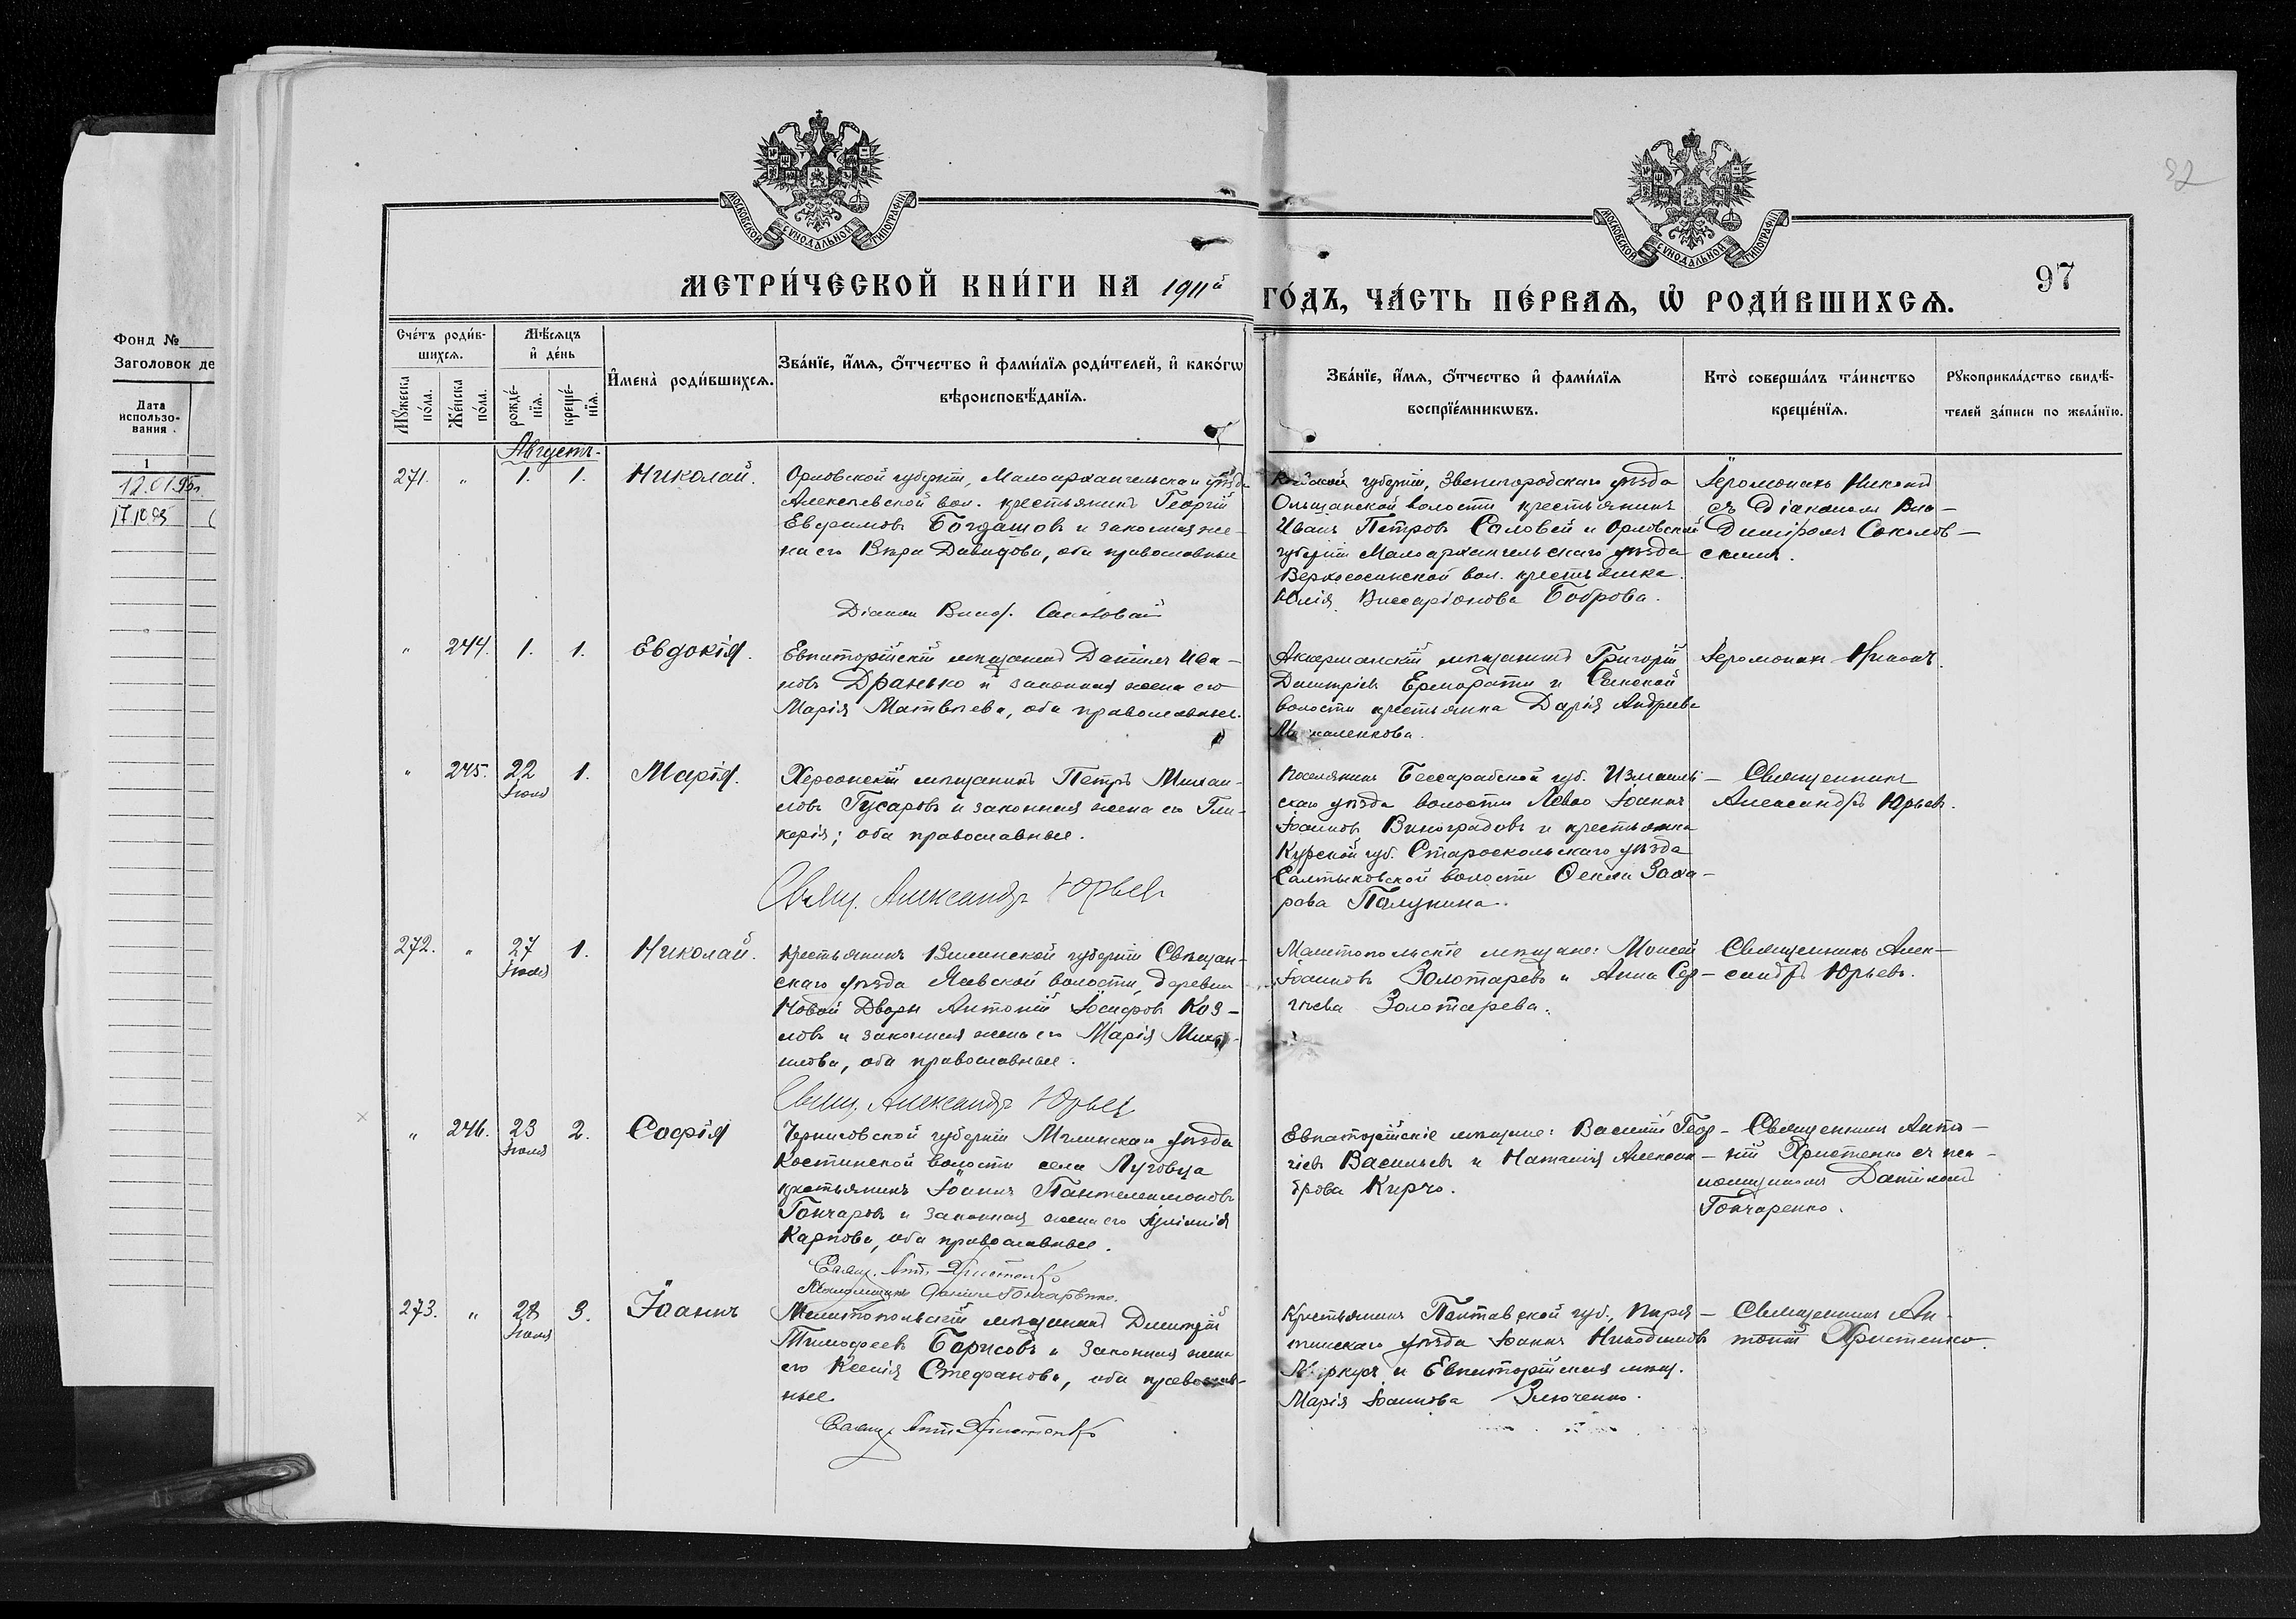 МОСКОВСКОЙ СѴНОДАЛЬНОЙ ТИПОГРАФІИ
МОСКОВСКОЙ СѴНОДАЛЬНОЙ ТИПОГРАФІИ
МЕТРИ́ЧЕСКОЙ КНИ́ГИ НА 1911й
ГО́ДЪ, ЧА́СТЬ ПЕ́РВАѦ, Ѡ҆ РОДИ́ВШИХСѦ.
97
Фонд №
Заголовок де
Дата
использо-
вания
1
12.01.95г
17.10.95
Сче́тъ роди́в-
шихсѧ.
Мꙋ́жеска по́ла.
Же́нска по́ла.
Мѣ́сѧцъ
и҆ де́нь
рожде́-
нїѧ.
креще́-
нїѧ.
И҆мена̀ роди́вшихсѧ.
Зва́нїе, и҆́мѧ, ѻ҆́тчество и҆ фами́лїѧ роди́телей, и҆ како́гѡ
вѣроисповѣ́данїѧ.
Зва́нїе, и҆́мѧ, ѻ҆́тчество и҆ фами́лїѧ
воспрїе́мникѡвъ.
Кто̀ соверша́лъ та́инство
креще́нїѧ.
Рꙋкоприкла́дство свидѣ́-
телей за́писи по жела́нїю.
Августъ.
271. " 1. 1. Николай.
Орловской губерніи, Малоархангельскаго уѣзда
Алексеевской вол. крестьянинъ Георгій
Евфимовъ Богдашовъ и законная же-
на его Вѣра Давидова, оба православные
Кіевской губерніи, Звенигородскаго уѣзда
Ольшанской волости крестьянинъ
Иванъ Петровъ Соловей и Орловской
губерніи Малоархангельскаго уѣзда
Верхососенской вол. крестьянка
Юлія Виссаріонова Боброва.
Іеромонахъ Никонъ
съ Діакономъ Вла-
диміромъ Соколов-
скимъ.
" 244. 1. 1. Евдокія.
Евпаторійскій мѣщанинъ Даніилъ Ива-
новъ Дранько и законная жена его
Марія Матвѣева, оба православные.
Аккерманскій мѣщанинъ Григорій
Димитріевъ Ермурати и Сакской
волости крестьянка Дарія Андреева
Іеромонахъ Никонъ.
" 245. 22 Іюля 1. Марія.
Херсонскій мѣщанинъ Петръ Михаи-
ловъ Гусаровъ и законная жена его Гли-
керія; оба православные.
Свящ. Александръ Юрьевъ
Поселянинъ Бессарабской губ. Измаиль-
скаго уѣзда волости Іоаннъ
Іоанновъ Виноградовъ и крестьянка
Курской губ. Старооскольскаго уѣзда
Салтыковской волости Заха-
рова Полунина.
Священникъ
Александръ Юрьевъ.
272. " 27 Іюля 1. Николай.
Крестьянинъ Виленской губерніи Свѣнцян-
скаго уѣзда волости, деревни
Новой Дворъ Антоній Іосифовъ Коз-
ловъ и законная жена его Марія Михаи-
лова, оба православные.
Свящ. Александръ Юрьевъ
Мелитопольскіе мѣщане: Моисей
Іоанновъ Золотаревъ и Анна Сер-
гіева Золотарева.
Священникъ Алек-
сандръ Юрьевъ.
" 246. 23 Іюля 2. Софія
Черниговской губерніи Мглинскаго уѣзда
Костинской волости села Луговца
крестьянинъ Іоаннъ Пантелеимоновъ
Гончаровъ и законная жена его Іуліанія
Карпова, оба православные.
Свящ. Ант. Христенко
Псаломщикъ Даніилъ Гончаренко.
Евпаторійскіе мѣщане: Василій Геор-
гіевъ Васильевъ и Наталія Алексан-
дрова Кирчо.
Священникъ Анто-
ній Христенко съ пса-
ломщикомъ Даніиломъ
Гончаренко.
273. " 28 Іюля 3. Іоаннъ
Мелитопольскій мѣщанинъ Димитрій
Тимофеевъ Борисовъ и законная жена
его Ксенія Стефанова, оба православ-
ные
Свящ. Ант. Христенко
Крестьянинъ Полтавской губ., Пиря-
тинскаго уѣзда Іоаннъ Никодимовъ
и Евпаторійская мѣщ.
Марія Іоаннова
Священникъ Ан-
тоній Христенко.